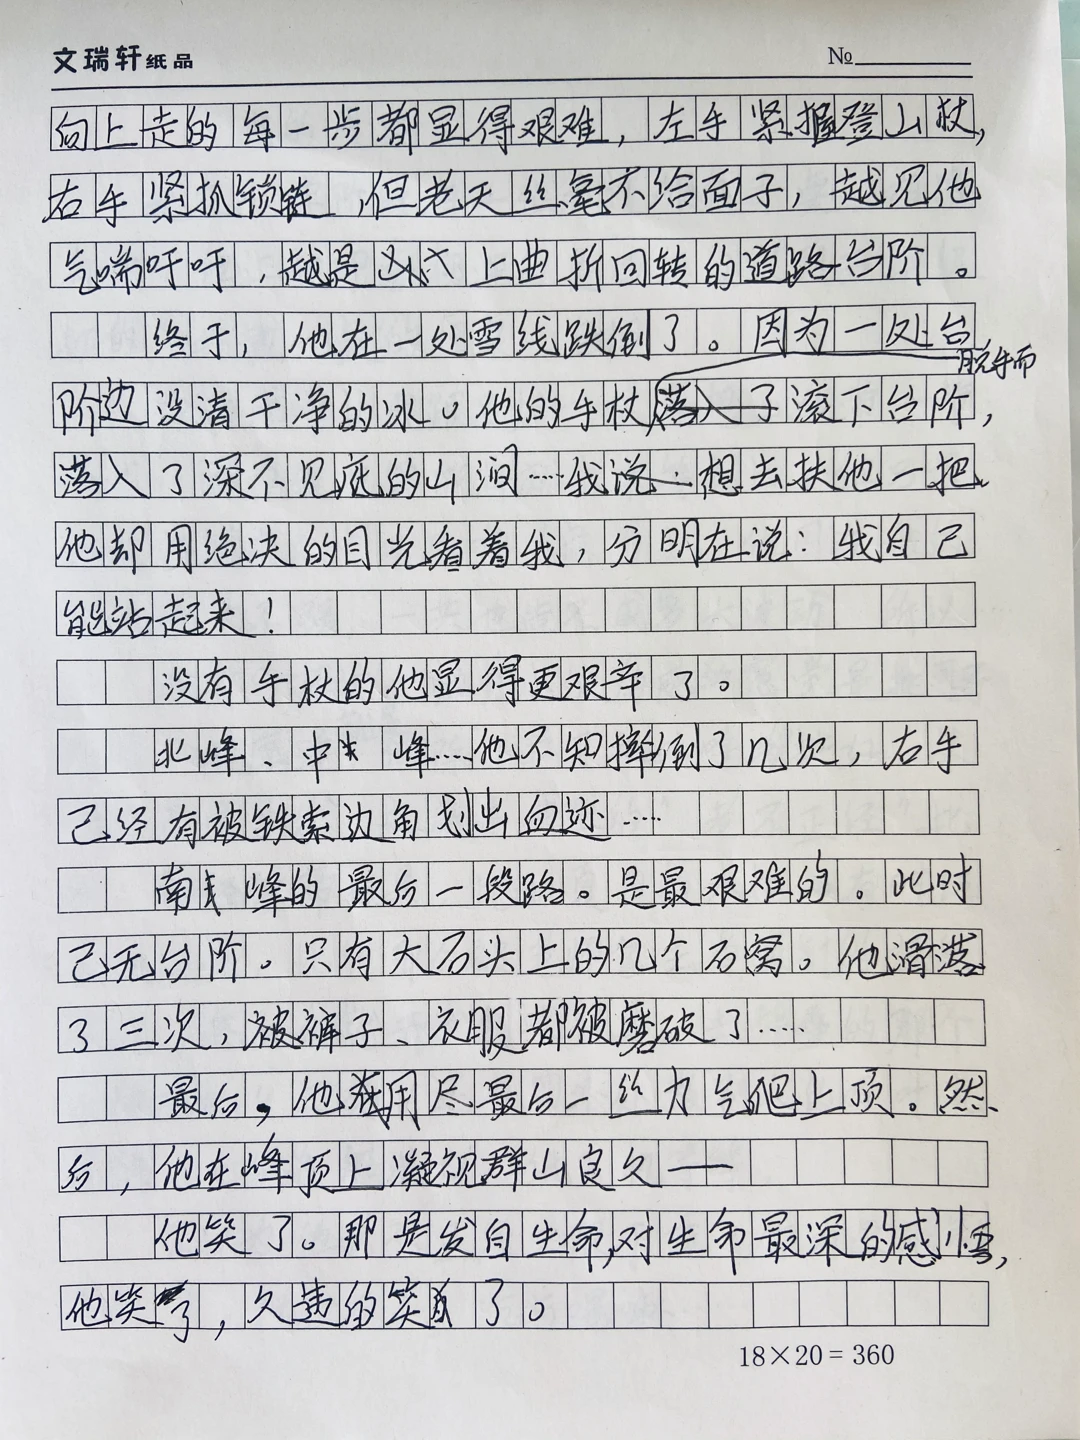 文瑞轩纸品
№
向上走的每一步都显得艰难，左手紧握登山杖，
右手紧抓锁链，但老天丝毫不给面子，越见他
气喘吁吁，越是 上曲折回转的道路台阶。
终于，他在一处雪线跌倒了。因为一处台
脱手而
阶边没清干净的冰。他的手杖落入了滚下台阶，
落入了深不见底的山涧……我说…想去扶他一把，
他却用绝决的目光看着我，分明在说：我自己
能站起来！
没有手杖的他显得更艰辛了。
北峰、中 峰……他不知摔倒了几次，右手
己经有被铁索边角划出血迹……
南 峰的最后一段路。是最艰难的。此时
己无台阶。只有大石头上的几个石窝。他滑落
了三次，被裤子、衣服都被磨破了……
最后，他 用尽最后一丝力气爬上顶。然
后，他在峰顶上凝视群山良久——
他笑了。那是发自生命，对生命最深的感悟，
他笑了，久违的笑 了。
18×20=360